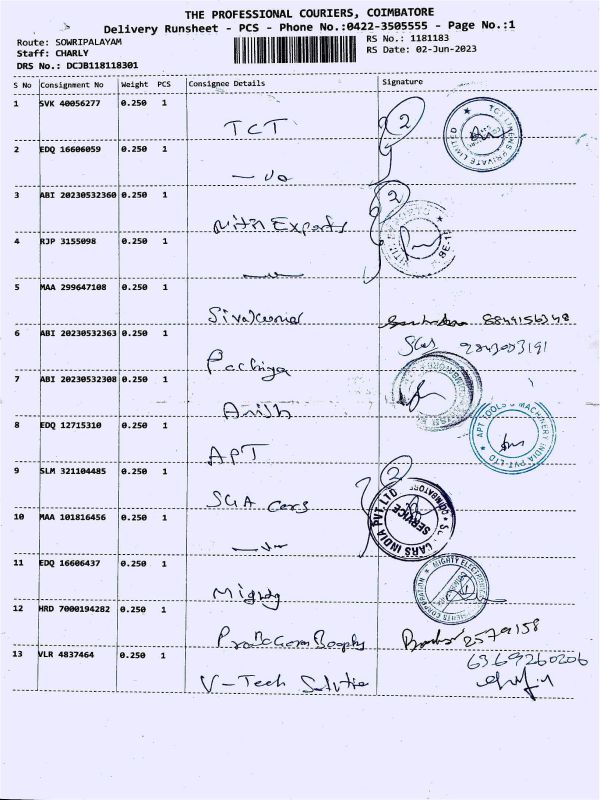 THE PROFESSIONAL COURIERS, COIMBATORE
Delivery Runsheet - PCS - Phone No.:0422-3505555 - Page No.:1
Route: SOWRIPALAYAM
Staff: CHARLY
DRS No.: DCJB118118301
RS No.: 1181183
RS Date: 02-Jun-2023
S No Consignment No Weight PCS Consignee Details Signature
1 SVK 40056277 0.250 1 TCT 2
TCT LINENS PRIVATE LIMITED
2 EDQ 16606059 0.250 1
3 ABI 20230532360 0.250 1 Nitin Exports 2
4 RJP 3155098 0.250 1
5 MAA 299647108 0.250 1 Sivakumar
6 ABI 20230532363 0.250 1
7 ABI 20230532308 0.250 1 Anish
8 EDQ 12715310 0.250 1 APT
APT TOOLS & MACHINERY INDIA PVT-LTD
9 SLM 321104485 0.250 1 SGA Cars 2
CARS INDIA PVT.LTD
SERVICE
COIMBATORE
10 MAA 101816456 0.250 1
11 EDQ 16606437 0.250 1 Mighty
MIGHTY ELECTRONIC
12 HRD 7000194282 0.250 1 2579158
13 VLR 4837464 0.250 1 V-Tech Solution 6369260206